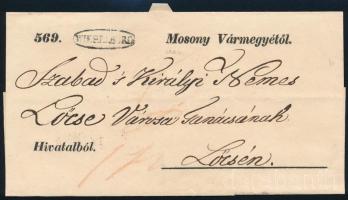 569. Mosony Vármegyétől.
Szabad 's Királyi Nemes
Lőcse Városa Tanácsának
Hivatalból.
Lőcsén.